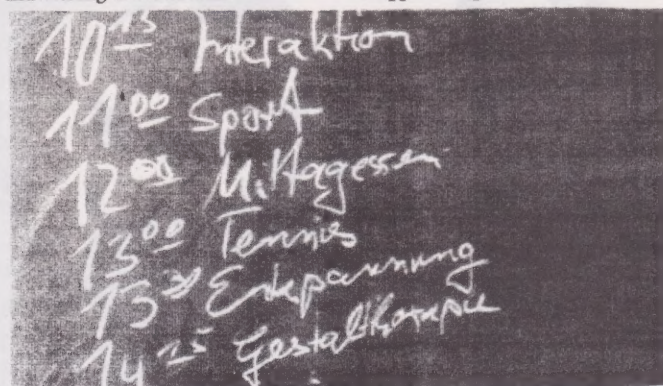 10 15 Interaktion
11 00 Sport
12 00 Mittagessen
13 00 Tennis
13 30 Entspannung
14 15 Gestalttherapie